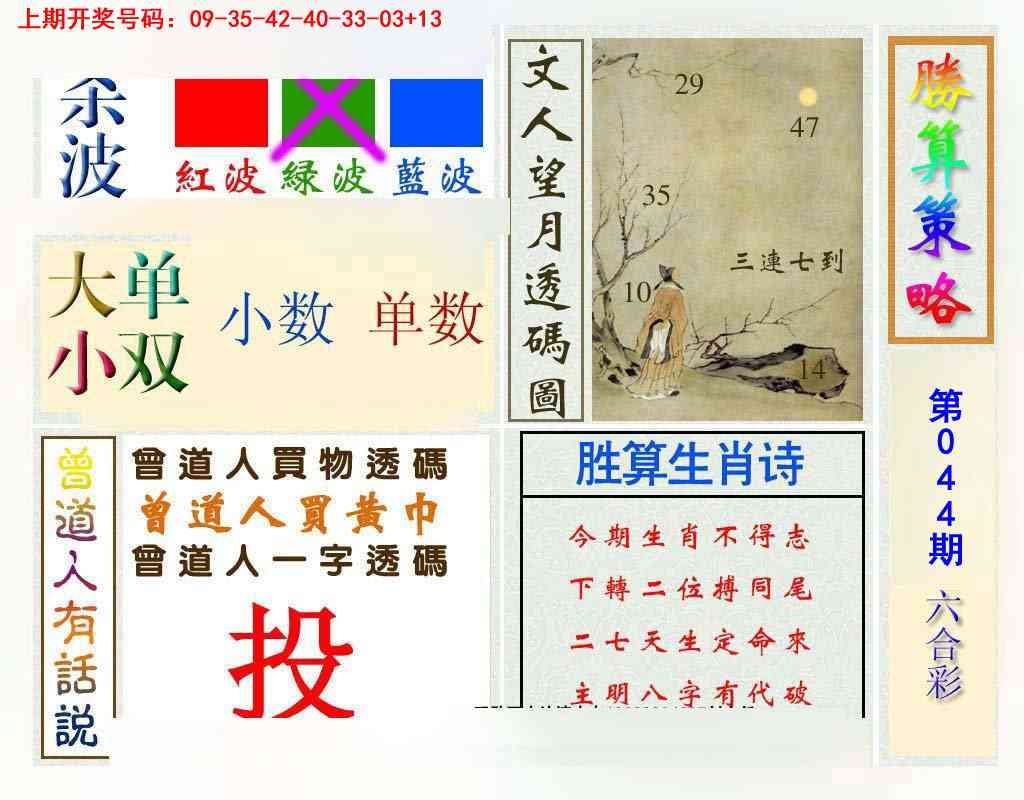 上期开奖号码：09-35-42-40-33-03+13
杀波
紅波 緑波 藍波
大单
小双
小数 单数
文人望月透碼圖
29
47
35
三連七到
10
14
勝算策略
第044期
六合彩
曾道人有話説
曾道人買物透碼
曾道人買黃巾
曾道人一字透碼
投
胜算生肖诗
今期生肖不得志
下轉二位搏同尾
二七天生定命來
主明八字有代破